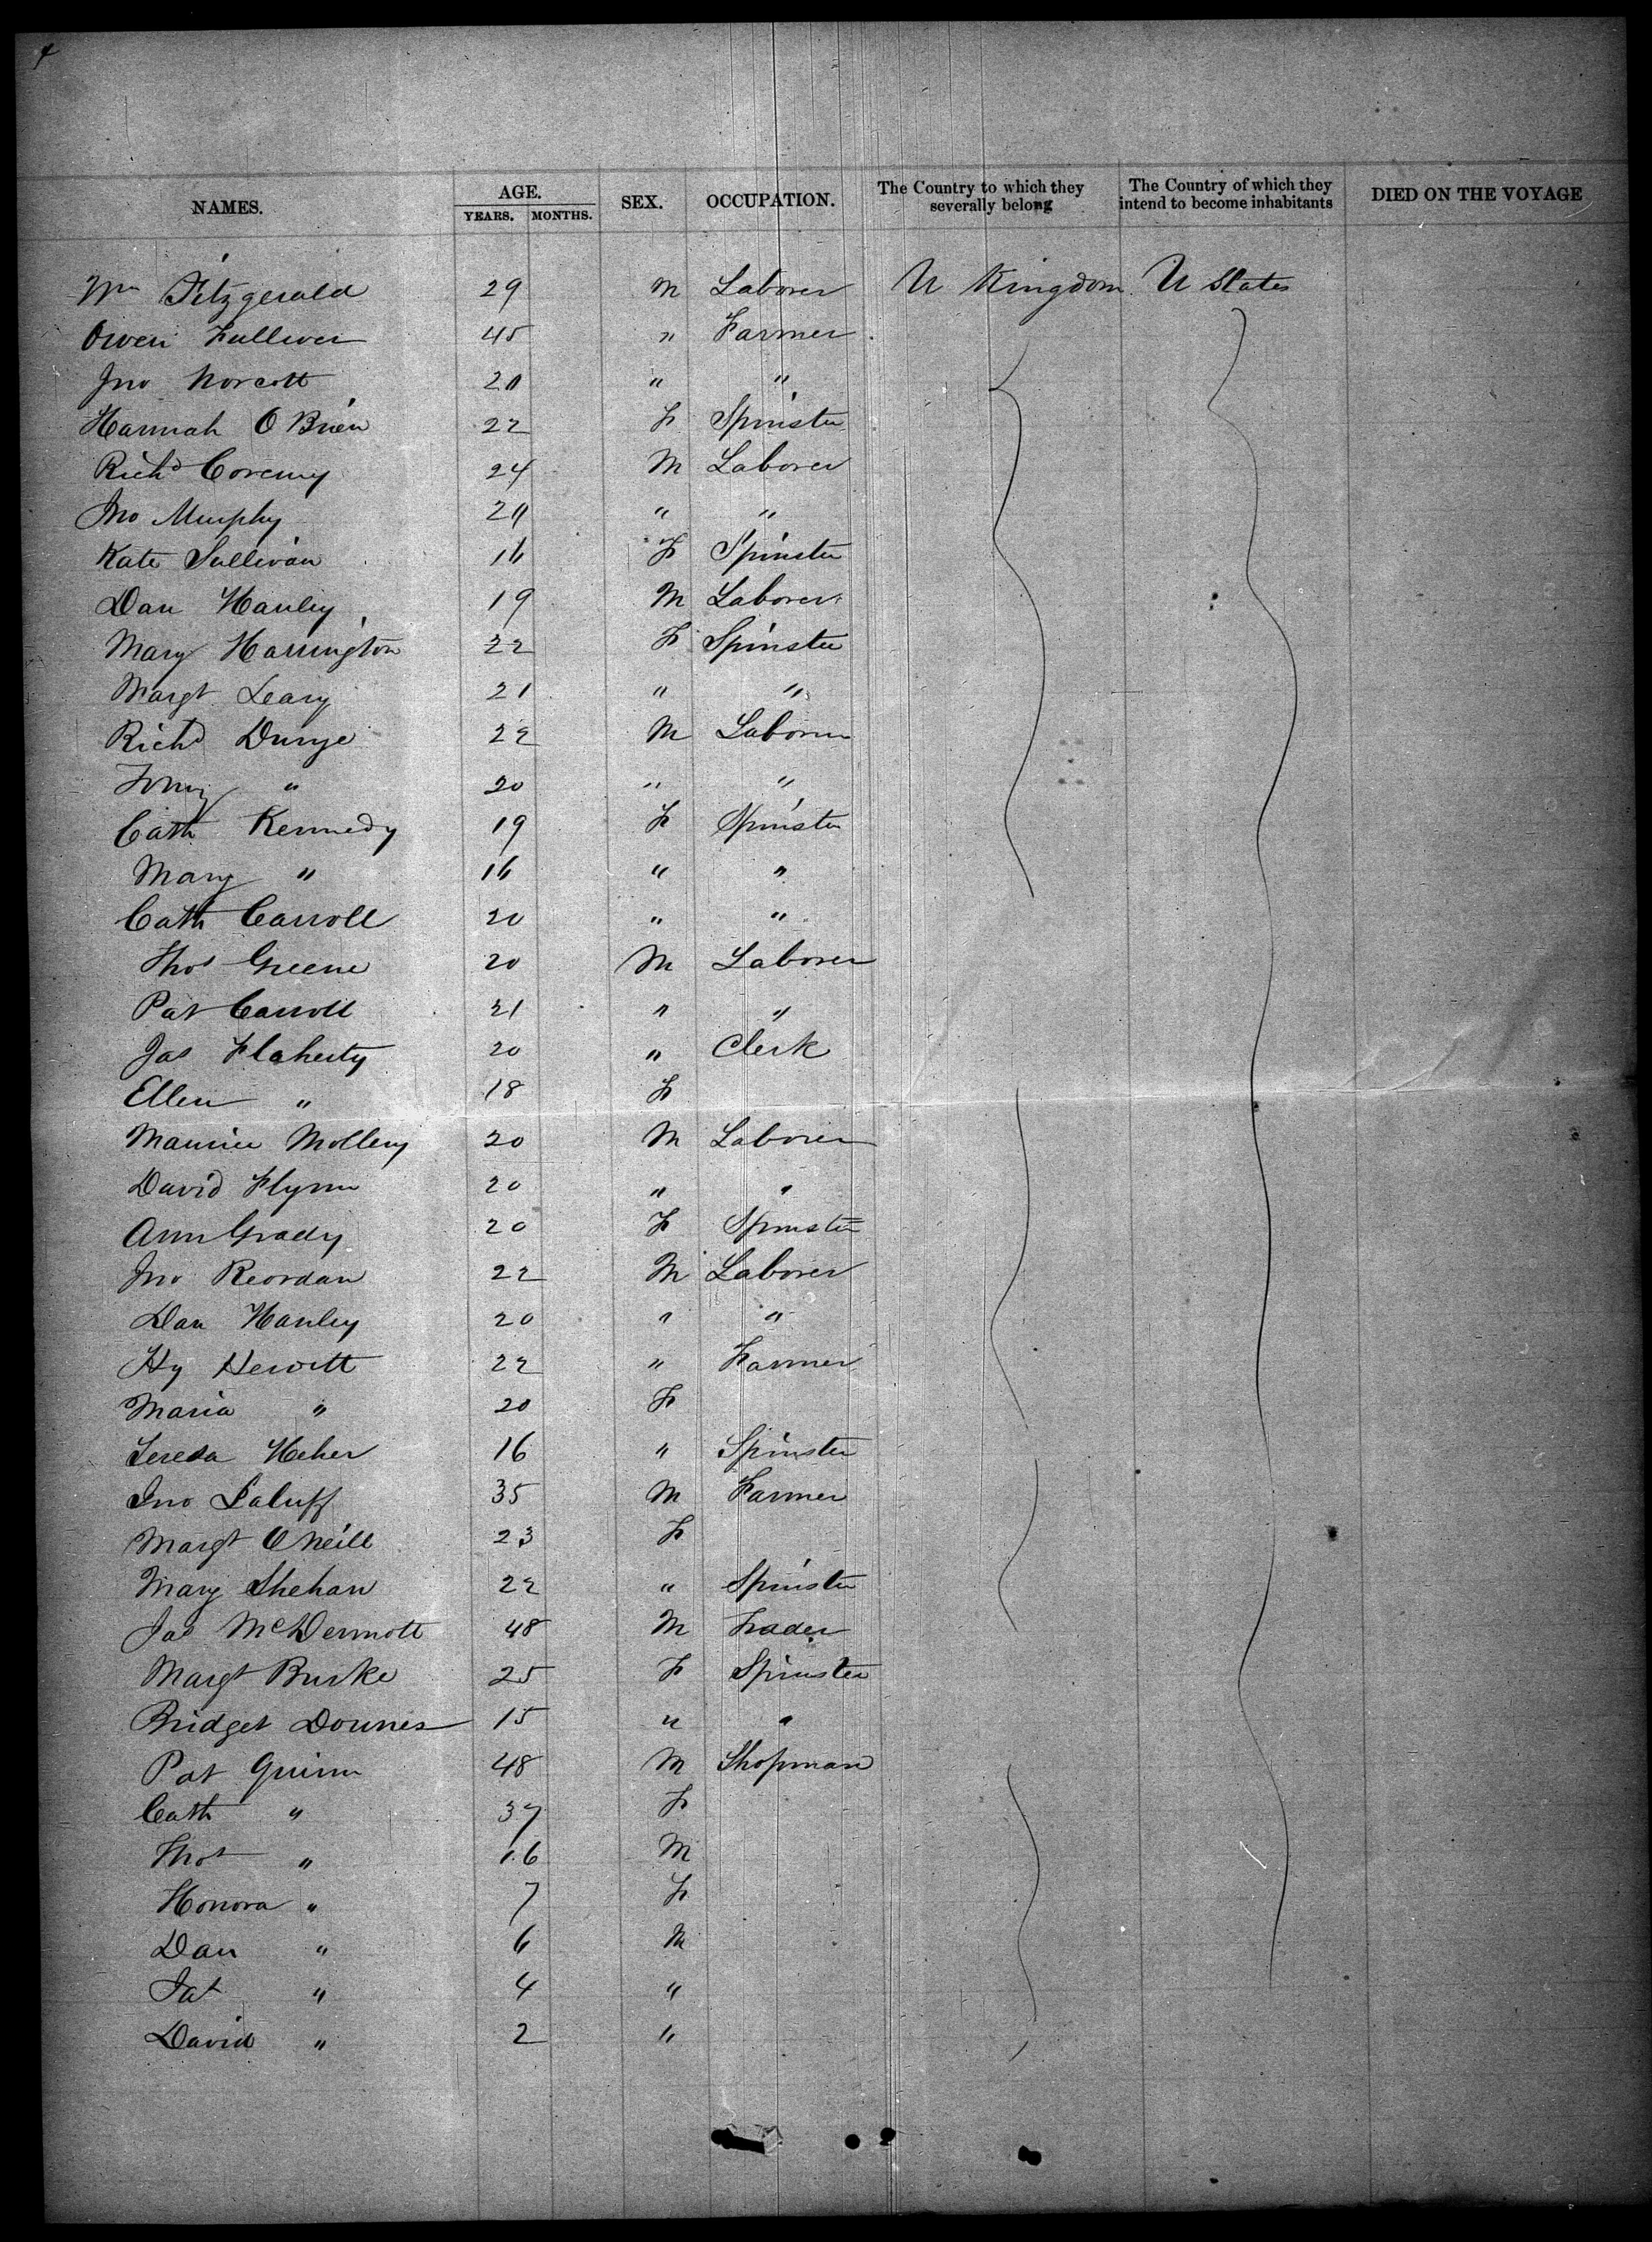 4
NAMES. AGE. YEARS. MONTHS. SEX. OCCUPATION. The Country to which they severally belong The Country of which they intend to become inhabitants DIED ON THE VOYAGE
Wm Fitzgerald 29 M Laborer U Kingdom U States
Owen Fulliver 45 " Farmer
Jno Norcott 20 " "
Hannah O Brien 22 F Spinster
Richd Coremy 24 M Laborer
Jno Murphy 20 " "
Kate Sullivan 16 F Spinster
Dan Hanley 19 M Laborer
Mary Harrington 22 F Spinster
Margt Leary 21 " "
Richd Dunye 22 M Laborer
" 20 " "
Cath Kennedy 19 F Spinster
Mary " 16 " "
Cath Carroll 20 " "
Thos Greene 20 M Laborer
Pat Carroll 21 " "
Jas Flaherty 20 " Clerk
Ellen " 18 F
Maurice Mollery 20 M Laborer
David Flynn 20 " "
Ann Grady 20 F Spinster
Jno Reordan 22 M Laborer
Dan Hanley 20 " "
Hy Hewitt 22 " Farmer
Maria " 20 F
Teresa Heher 16 " Spinster
Jno Laluff 35 M Farmer
Margt O Neill 23 F
Mary Shehan 22 " Spinster
Jas McDermott 48 M Trader
Margt Burke 25 F Spinster
Bridget Downes 15 " "
Pat Quinn 48 M Shopman
Cath " 37 F
Thos " 16 M
Honora " 7 F
Dan " 6 M
Pat " 4 "
David " 2 "